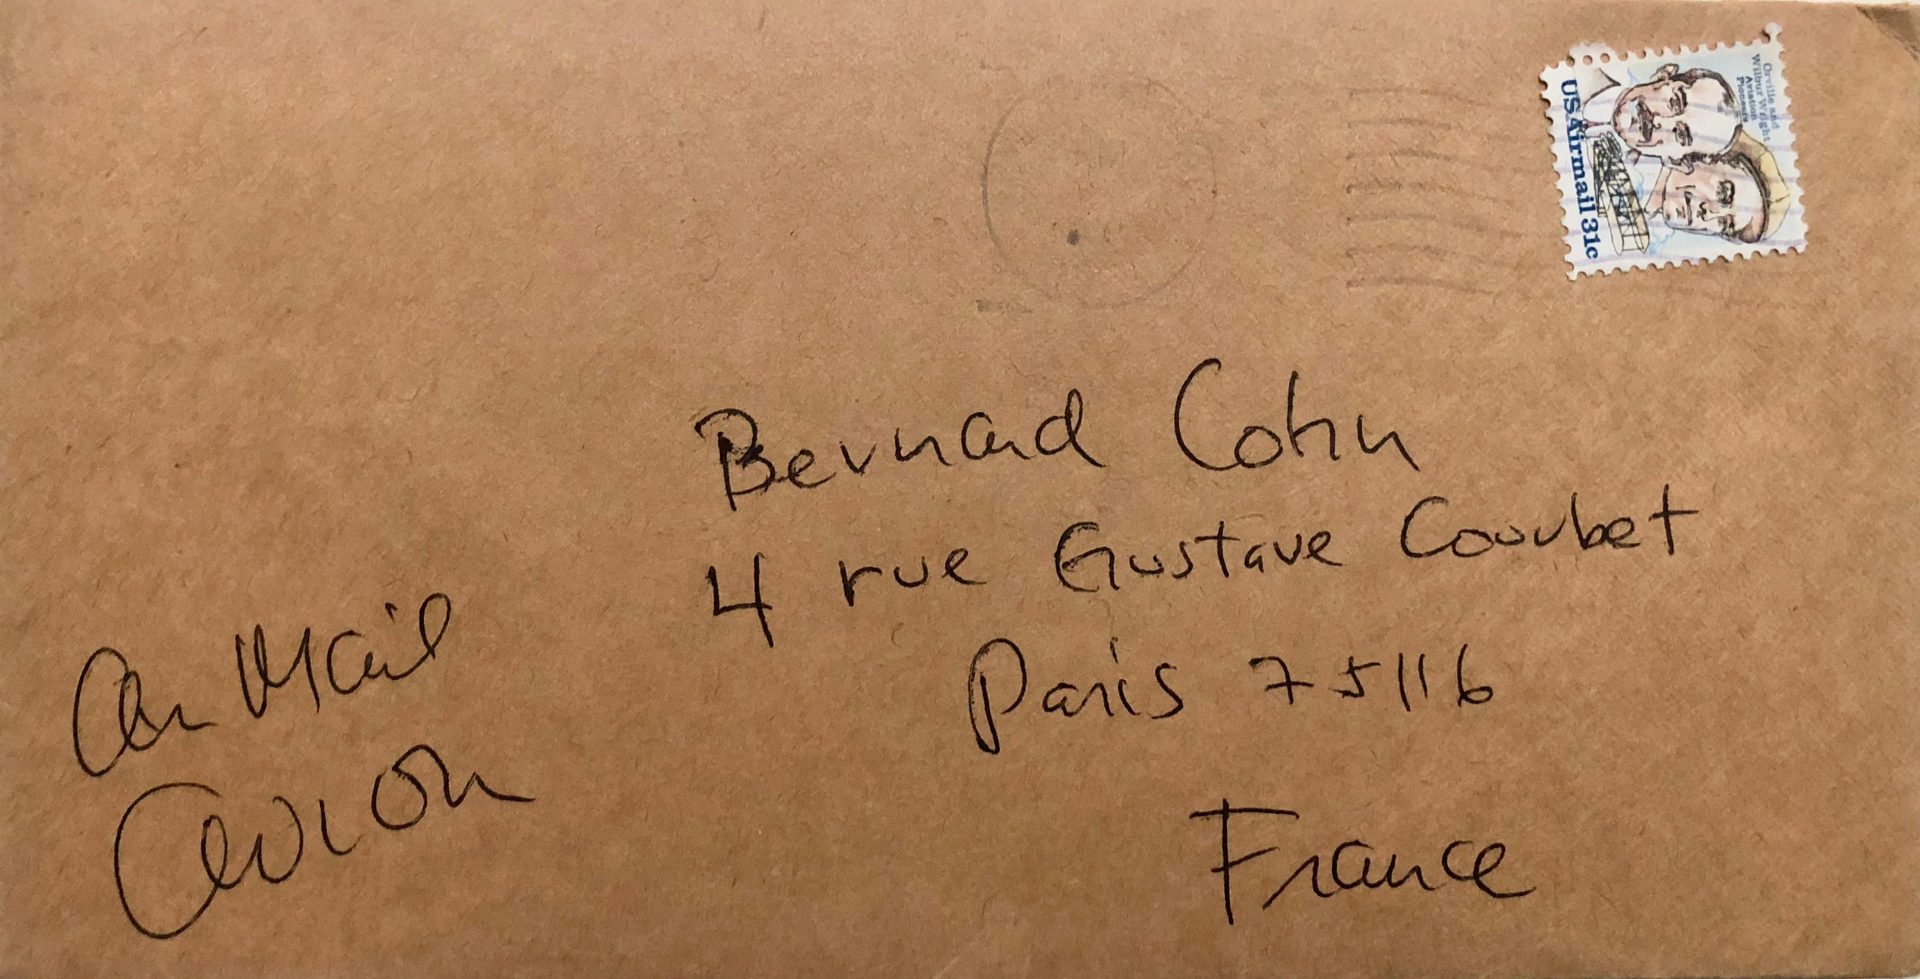 Orville and
Wilbur Wright
Aviation
Pioneers
USAirmail 31c
Bernard Cohn
4 rue Gustave Courbet
Paris 75116
France
Air Mail
Avion